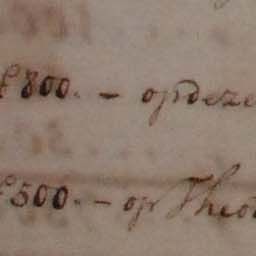 £ 800. – op deze
£ 500. – op Theo